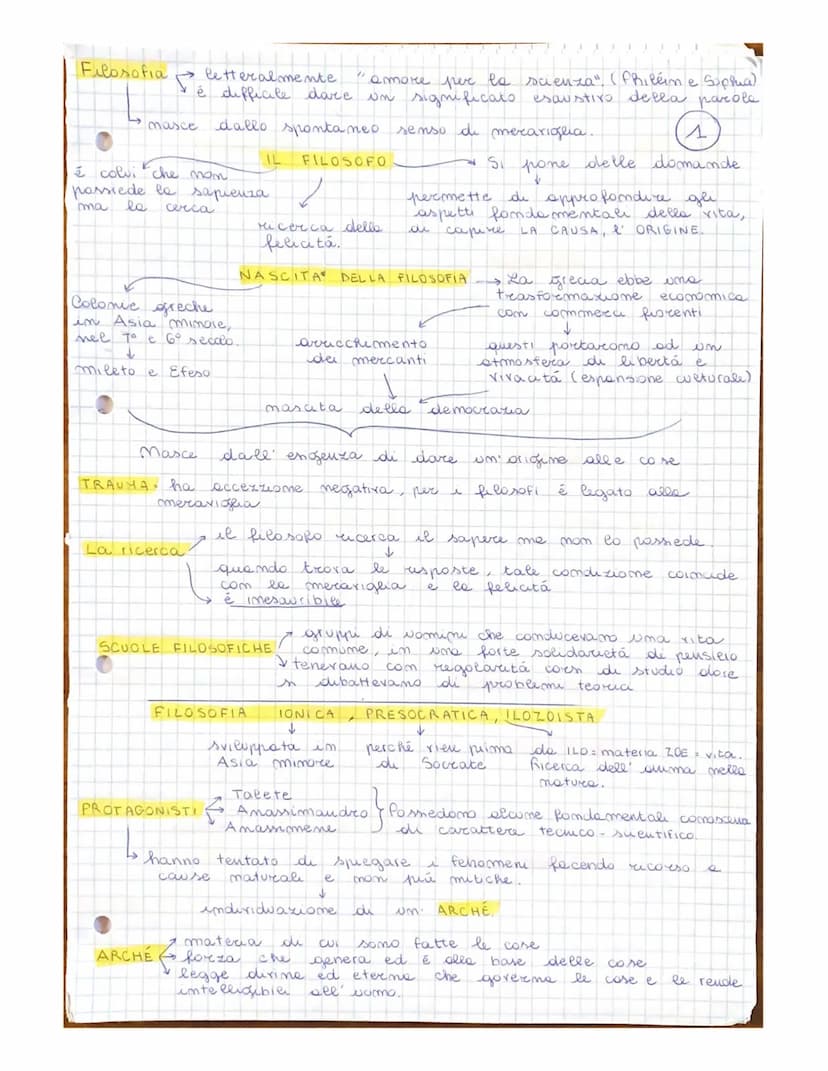 Filosofia → letteralmente "amore per la scienza". (Philéin e Sophia)
è difficile dare un significato esaustivo della parola
nasce dallo spontaneo senso di meraviglia.
1
IL FILOSOFO
Si pone delle domande
È colui che non
possiede la sapienza
ma la cerca
ricerca della
felicità.
permette di approfondire gli
aspetti fondamentali della vita,
di capire LA CAUSA, l'ORIGINE.
NASCITA DELLA FILOSOFIA
La grecia ebbe una
trasformazione economica
con commerci fiorenti
Colonie greche
in Asia minore,
nel 7° e 6° secolo.
mileto e Efeso
arricchimento
dei mercanti
questi portarono ad un
atmosfera di libertà e
vivacità (espansione culturale)
nascita della democrazia
Nasce dall'esigenza di dare un'origine alle cose
TRAUMA: ha accezione negativa, per i filosofi è legato alla
meraviglia
La ricerca
il filosofo ricerca il sapere ma non lo possiede.
quando trova le risposte, tale condizione coincide
con la meraviglia e la felicità
è inesauribile
SCUOLE FILOSOFICHE
gruppi di uomini che conducevano una vita
comune, in una forte solidarietà di pensiero
tenevano con regolarità corsi di studio dove
si dibattevano di problemi teorici
FILOSOFIA IONICA, PRESOCRATICA, ILOZOISTA
sviluppata in
Asia minore
perché vieu prima
di Socrate
da ILO = materia ZOE = vita.
Ricerca dell'anima nella
natura.
PROTAGONISTI
Talete
Anassimandro
Anassimene
Possedono alcune fondamentali conoscenze
di carattere tecnico-scientifico.
hanno tentato di spiegare i fenomeni facendo ricorso a
cause naturali e non più mitiche.
individuazione di un' ARCHÉ.
ARCHÉ
materia di cui sono fatte le cose
forza che genera ed è alla base delle cose
legge divina ed eterna che governa le cose e le rende
intelligibili all'uomo.